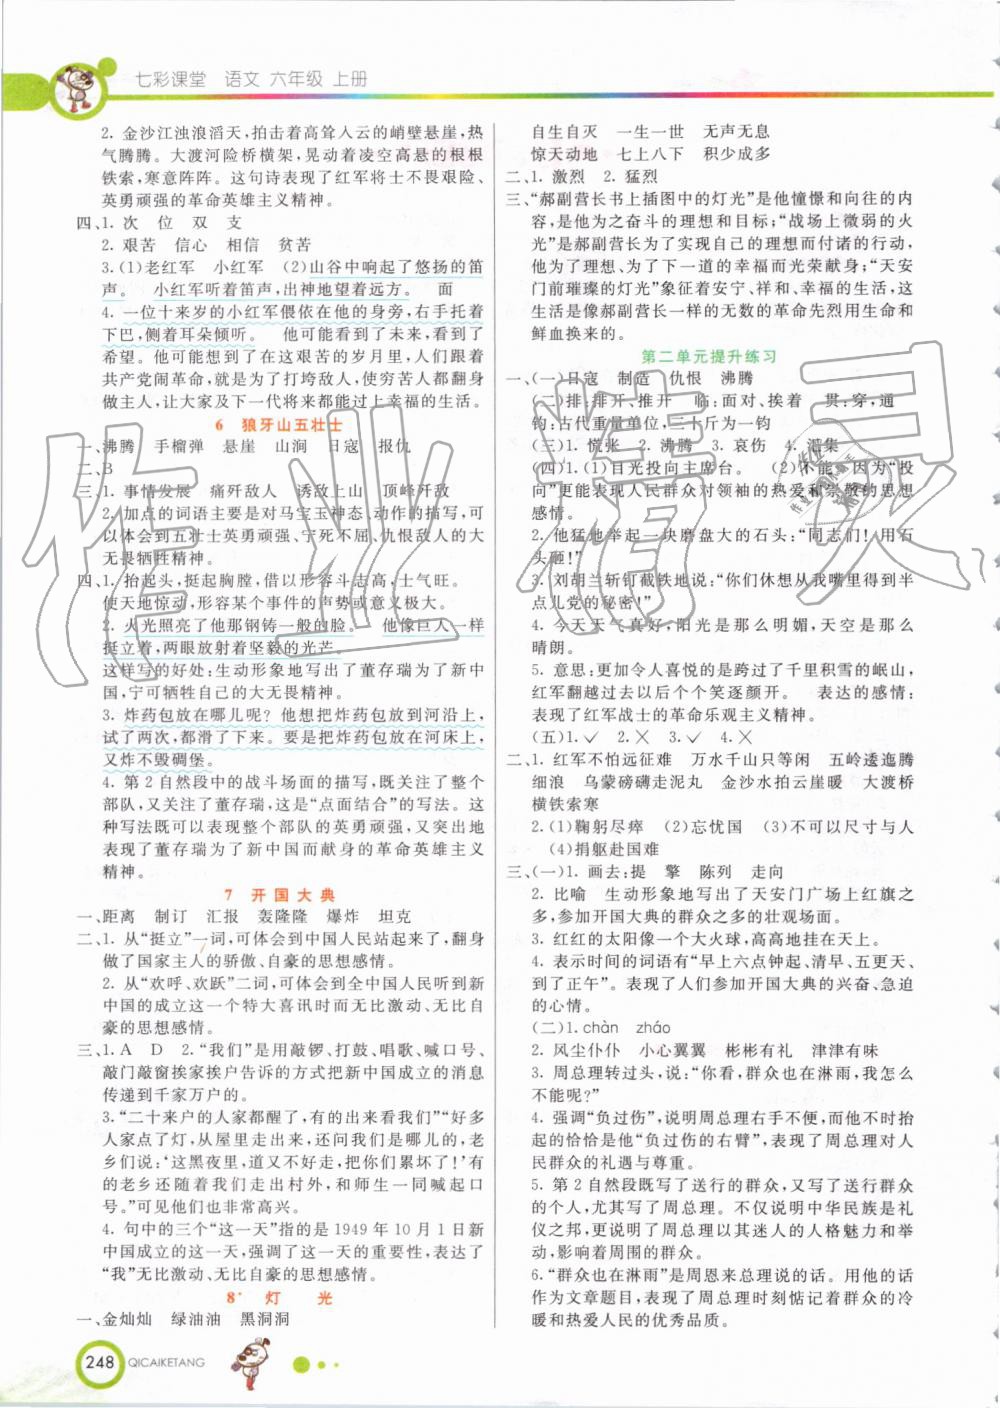 七彩课堂 语文 六年级 上册
2. 金沙江浊浪滔天，拍击着高耸入云的峭壁悬崖，热
气腾腾。大渡河险桥横架，晃动着凌空高悬的根根
铁索，寒意阵阵。这句诗表现了红军将士不畏艰险、
英勇顽强的革命英雄主义精神。
四、1. 次 位 双 支
2. 艰苦 信心 相信 贫苦
3. (1)老红军 小红军 (2)山谷中响起了悠扬的笛
声。 小红军听着笛声，出神地望着远方。 面
4. 一位十来岁的小红军偎依在他的身旁，右手托着
下巴，侧着耳朵倾听。 他可能看到了未来，看到了
希望。他可能想到了，在这艰苦的岁月里，我们跟着
共产党闹革命，就是为了打垮敌人，使穷苦人都翻身
做主，让大家及下一代将来都能过上幸福的生活。
6 狼牙山五壮士
一、沸腾 手榴弹 悬崖 山涧 日寇 报仇
二、B
三、1. 事情发展 痛歼敌人 诱敌上山 顶峰歼敌
2. 加点的词语主要是对马宝玉神态、动作的描写，可
以体会到五壮士英勇顽强、宁死不屈、仇恨敌人的大
无畏牺牲精神。
四、1. 抬起头，挺起胸膛，借以形容斗志高，士气旺。
使天地惊动，形容某个事件的声势或意义极大。
2. 火光照亮了他那钢铸一般的脸。 他像巨人一样
挺立着，两眼放射着坚毅的光芒。
这样写的好处：生动形象地写出了董存瑞为了新中
国，宁可牺牲自己的大无畏精神。
3. 炸药包放在哪儿呢？他想把炸药包放到河沿上，
试了两次，都滑了下来。要是把炸药包放在河床上，
又炸不毁碉堡。
4. 第2自然段中的战斗场面的描写，既关注了整个
部队，又关注了董存瑞，这是“点面结合”的写法。这
种写法既可以表现整个部队的英勇顽强，又突出地
表现了董存瑞为了新中国而献身的革命英雄主义
精神。
7 开国大典
一、距离 制订 汇报 轰隆隆 爆炸 坦克
二、1. 从“挺立”一词，可体会到中国人民站起来了，翻身
做了国家主人的骄傲、自豪的思想感情。
2. 从“欢呼、欢跃”二词，可体会到全中国人民听到新
中国的成立这一个特大喜讯时而无比激动、无比自
豪的思想感情。
三、1. A D 2. “我们”是用敲锣、打鼓、唱歌、喊口号、
敲门敲窗挨家挨户告诉的方式把新中国成立的消息
传递到千家万户的。
3. “二十来户的人家都醒了，有的出来看我们”“好多
人家点了灯，从屋里走出来，还问我们是哪儿的，老
乡们说：‘这黑夜里，道又难走，可把你们累坏了！’有
的老乡还随着我们走出村外，和师生一同喊起口
号。”可见他们也非常高兴。
4. 句中的三个“这一天”指的是1949年10月1日新
中国成立的这一天，强调了这一天的重要性，表达了
“我”无比激动、无比自豪的思想感情。
8* 灯光
一、金灿灿 绿油油 黑洞洞
自生自灭 一生一世 无声无息
惊天动地 七上八下 积少成多
二、1. 激烈 2. 猛烈
三、“郝副营长书上插图中的灯光”是他憧憬和向往的内
容，是他为之奋斗的理想和目标；“战场上微弱的火
光”是郝副营长为了实现自己的理想而付诸的行动，
他为了理想、为了下一道的幸福而光荣献身；“天安
门前璀璨的灯光”象征着安宁、祥和、幸福的生活，这
生活是像郝副营长一样的无数的革命先烈用生命和
鲜血换来的。
第二单元提升练习
一、(一)日寇 制造 仇恨 沸腾
(二)排：排开、推开 临：面对、挨着 贯：穿，通
钧：古代重量单位，三十斤为一钧
(三)1. 慌张 2. 沸腾 3. 哀伤 4. 湣集
(四)1. (1)目光投向主席台。 (2)不能，因为“投
向”更能表现人民群众对领袖的热爱和崇敬的思想
感情。
2. 他猛地举起一块磨盘大的石头：“同志们！用石
头砸！”
3. 刘胡兰斩钉截铁地说：“你们休想从我嘴里得到半
点儿党的秘密！”
4. 今天天气真好，阳光是那么明媚，天空是那么
晴朗。
5. 意思：更加令人喜悦的是跨过了千里积雪的岷山，
红军翻越过去以后个个笑逐颜开。 表达的感情：
表现了红军战士的革命乐观主义精神。
(五)1.✓ 2.✕ 3.✓ 4.✕
二、1. 红军不怕远征难 万水千山只等闲 五岭逶迤腾
细浪 乌蒙磅礴走泥丸 金沙水拍云崖暖 大渡桥
横铁索寒
2. (1)鞠躬尽瘁 (2)忘忧国 (3)不可以尺寸与人
(4)捐躯赴国难
三、(一)1. 画去：提 擎 陈列 走向
2. 比喻 生动形象地写出了天安门广场上红旗之
多，表现了参加开国大典的群众之多的壮观场面。
3. 红红的太阳像一个大火球，高挂在天上。
4. 表示时间的词语有“早上六点钟起、清早、五更天、
到了正午”。表现了人们参加开国大典的兴奋、急迫
的心情。
(二)1. chàn zháo
2. 风尘仆仆 小心翼翼 彬彬有礼 津津有味
3. 周总理转过头，说：“你看，群众也在淋雨，我怎么
不能呢？”
4. 强调“负过伤”，说明周总理右手不便，而他不时抬
起的恰恰是他“负过伤的右臂”，表现了周总理对人
民群众的礼遇与尊重。
5. 第2自然段既写了送行的群众，又写了送行群众
的个人，尤其写了周总理。不仅说明中华民族是礼
仪之邦，更说明周总理以其迷人的人格魅力和举
动，影响着周围的群众。
6. “群众也在淋雨”是周恩来总理说的话。用他的话
作为文章题目，表现了周总理时刻惦记着群众的冷
暖和热爱人民的优秀品质。
248 QICAIKETANG
作业精灵